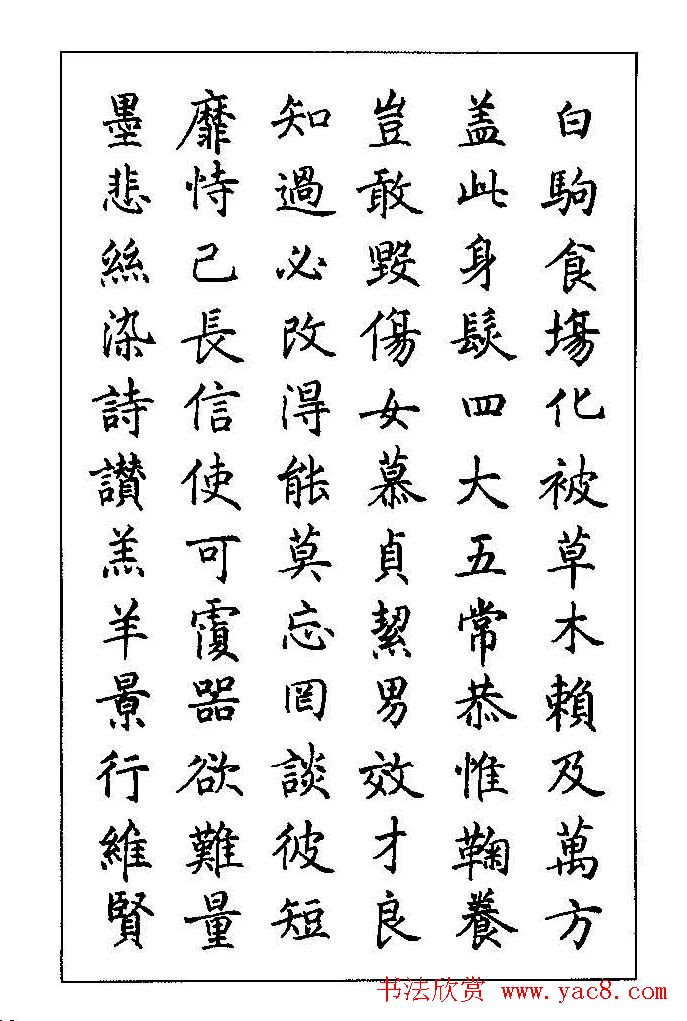 白駒食場化被草木賴及萬方
盖此身髮四大五常恭惟鞠養
豈敢毀傷女慕貞絜男效才良
知過必改得能莫忘罔談彼短
靡恃己長信使可覆器欲難量
墨悲絲染詩讚羔羊景行維賢
书法欣赏 www.yac8.com